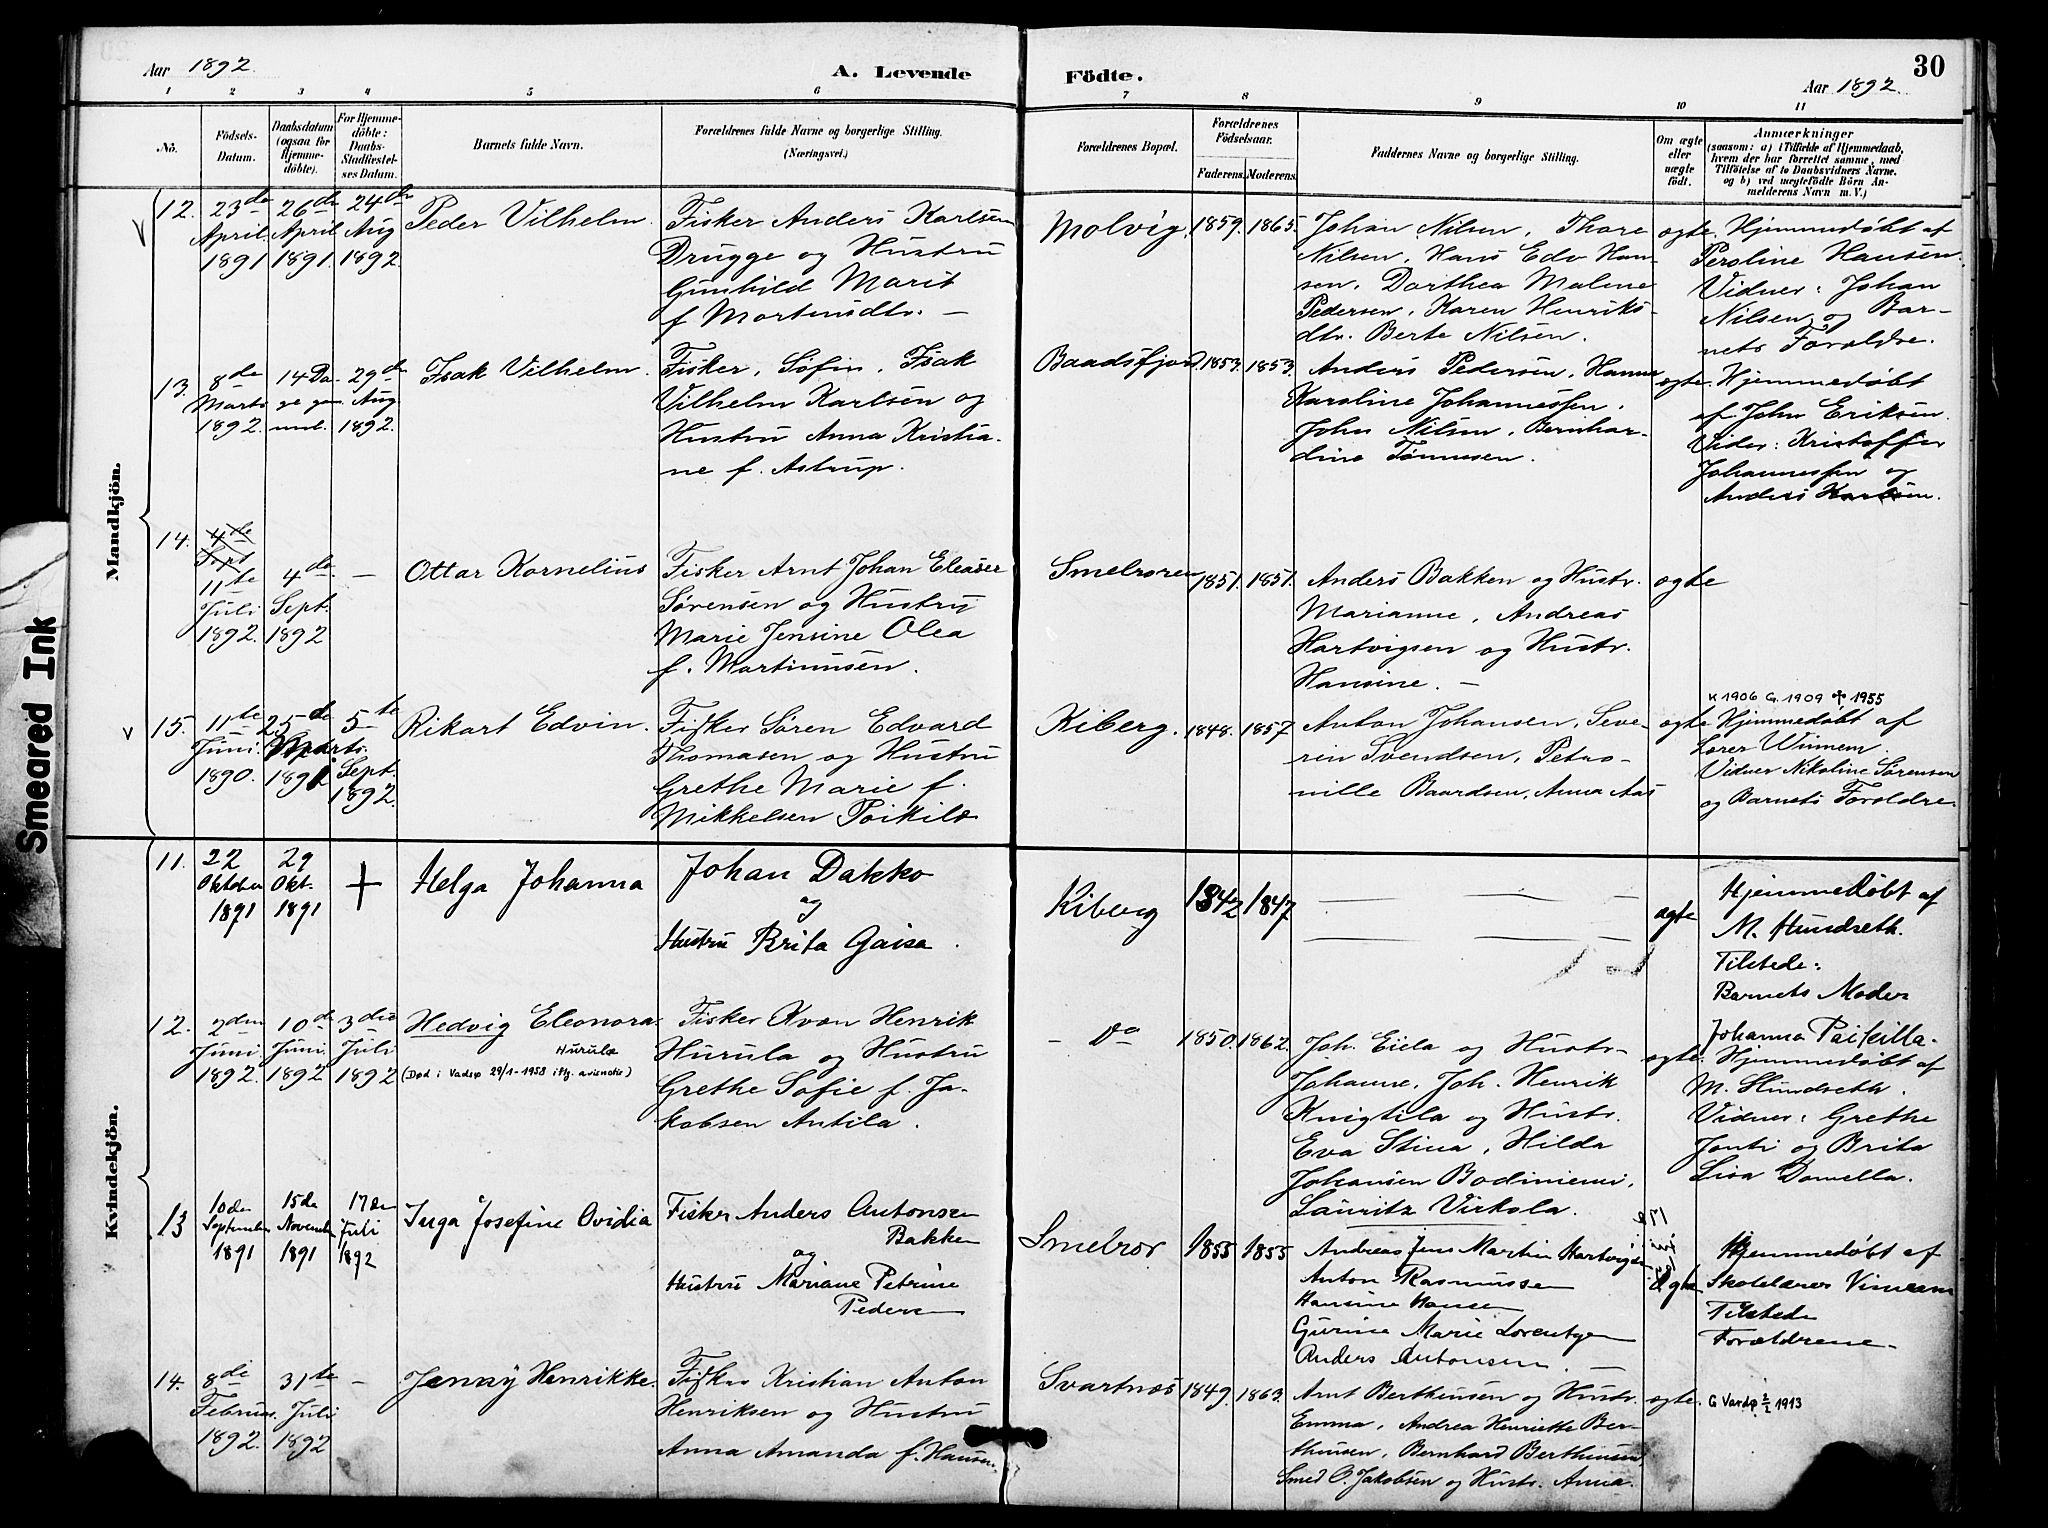 Aar 1892.
A. Levende
Födte.
Aar 1892.
30
1 2 3 4 5 6 7 8 9 10 11
No.
Födsels-
Datum.
Daabsdatum
(ogsaa for
Hjemme-
döbte).
For Hjemme-
döbte:
Daabs-
Stadfæstel-
ses Datum.
Barnets fulde Navn.
Forældrenes fulde Navne og borgerlige Stilling.
(Næringsvei.)
Forældrenes Bopæl.
Forældrenes
Födselsaar.
Faderens. Moderens.
Faddernes Navne og borgerlige Stilling.
Om ægte
eller
uægte
födt.
Anmærkninger
(saasom: a) i Tilfælde af Hjemmedaab,
hvem der har forrettet samme, med
Tilföielse af to Daabsvidners Navne.
og b) ved uægtefödte Börn An-
melderens Navn m. V.)
Mandkjön.
12.
23de
April
1891
26de
April
1891.
24de
Aug
1892.
Peder Vilhelm.
Fisker Anders Karlsen
Drugge og Hustru
Gunhild Marit
f. Mortensdtr. –
Molvig.
1859. 1865.
Johan Nilsen, Thore
Nilsen, Hans Edv Han-
sen, Dorthea Malene
Pedersen, Karen Henriks-
dtr. Berte Nilsen.
ægte.
Hjemmedøbt af
Peroline Hansen.
Vidner: Johan
Nilsen og Bar-
nets Foræeldre.
13.
8de
Marts
1892.
14 Da-
ge gam
mel.
29de
Aug
1892.
Isak Vilhelm.
Fisker, Søfin, Isak
Vilhelm Karlsen og
Hustru Anna Kristia-
ne f. Astrup.
Baadsfjord
1853. 1853.
Anders Pedersen, Hanna
Karoline Johannessen.
John Nilsen, Bernhar-
dine Tønnesen.
ægte.
Hjemmedøbt
af John Eriksen.
Vidner: Kristoffer
Johannessen og
Anders Karlsen.
14.
4de
Sept
11te
Juli
1892.
4de
Sept.
1892
–
Ottar Kornelius
Fisker Arnt Johan Eleaser
Sørensen og Hustru
Marie Jensine Olea
f. Martinusen.
Smelroren
1851. 1851.
Anders Bakken og Hustr.
Marianne, Andreas
Hartvigsen og Hustr.
Hansine. –
ægte
15.
11te
Juni
1890.
25de
Marts
1891
5te
Sept.
1892.
Rikart Edvin.
Fisker Søren Edvard
Thomasen og Hustru
Grethe Marie f.
Mikkelsen Poikilæ
Kiberg.
1848. 1857
Anton Johansen, Seve-
rin Svendsen, Petro-
nille Baardsen, Anna Aas
ægte
K 1906 G. 1909 ✝ 1955
Hjemmedøbt af
Lærer Winnem.
Vidner Nikoline Sørensen
og Barnets Forældre.
Kvindekjön.
11.
22
Oktober
1891
29
Okt.
1891
+
Helga Johanna
Johan Dakko
og
Hustru Brita Gaisa.
Kiberg
1842 1847
ægte
Hjemmedøbt af
M. Hundseth.
Tilstede:
Barnets Moder
Johanna Paikilla.
12.
2den
Juni
1892.
10de
Juni
1892
3die
Juli
1892
Hedvig Eleonora.
Hurulæ
(Død i Vadsø 29/1-1958 iflg. avisnotis)
Fisker Kvæn Henrik
Hurula og Hustru
Grethe Sofie f. Ja-
kobsen Antila.
– Do
1850. 1862.
Joh. Eiela og Hustr-
Johanne, Joh. Henrik
Knigtila og Hustr.
Eva Stina, Hilda
Johansen Bodiniemi,
Lauritz Virkola.
ægte.
Hjemmedøbt af
M. Hundseth.
Vidner: Grethe
Jonti og Brita
Lisa Domella.
13
10de
September
1891
15de
November
1891
17de
Juli
1892
Inga Josefine Ovidia
Fisker Anders Antonsen
Bakken
og
Hustru Mariane Petrine
Pedersen
Smelror
1855 1855
Andreas Jens Martin Hartvigsen
Anton Rasmussen
Hansine Hansen
Gurine Marie Lorentzen
Anders Antonsen. –
ægte
Hjemmedøbt af
Skolelærer Vinnem
Tilstede
Forældrene.
14.
8di
Februar.
1892.
31te
Juli
1892
–
Jenny Henrikke.
Fisker Kristian Anton
Henriksen og Hustru
Anna Amanda f. Hansen.
Svartnes
1849. 1863.
Arnt Berthensen og Hustr.
Emma, Andrea Henriette Ber-
thensen, Bernhard Berthensen
Smed O. Jakobsen og Hustr. Anna.
ægte.
G Vardø 2/2 1913
Smeared Ink